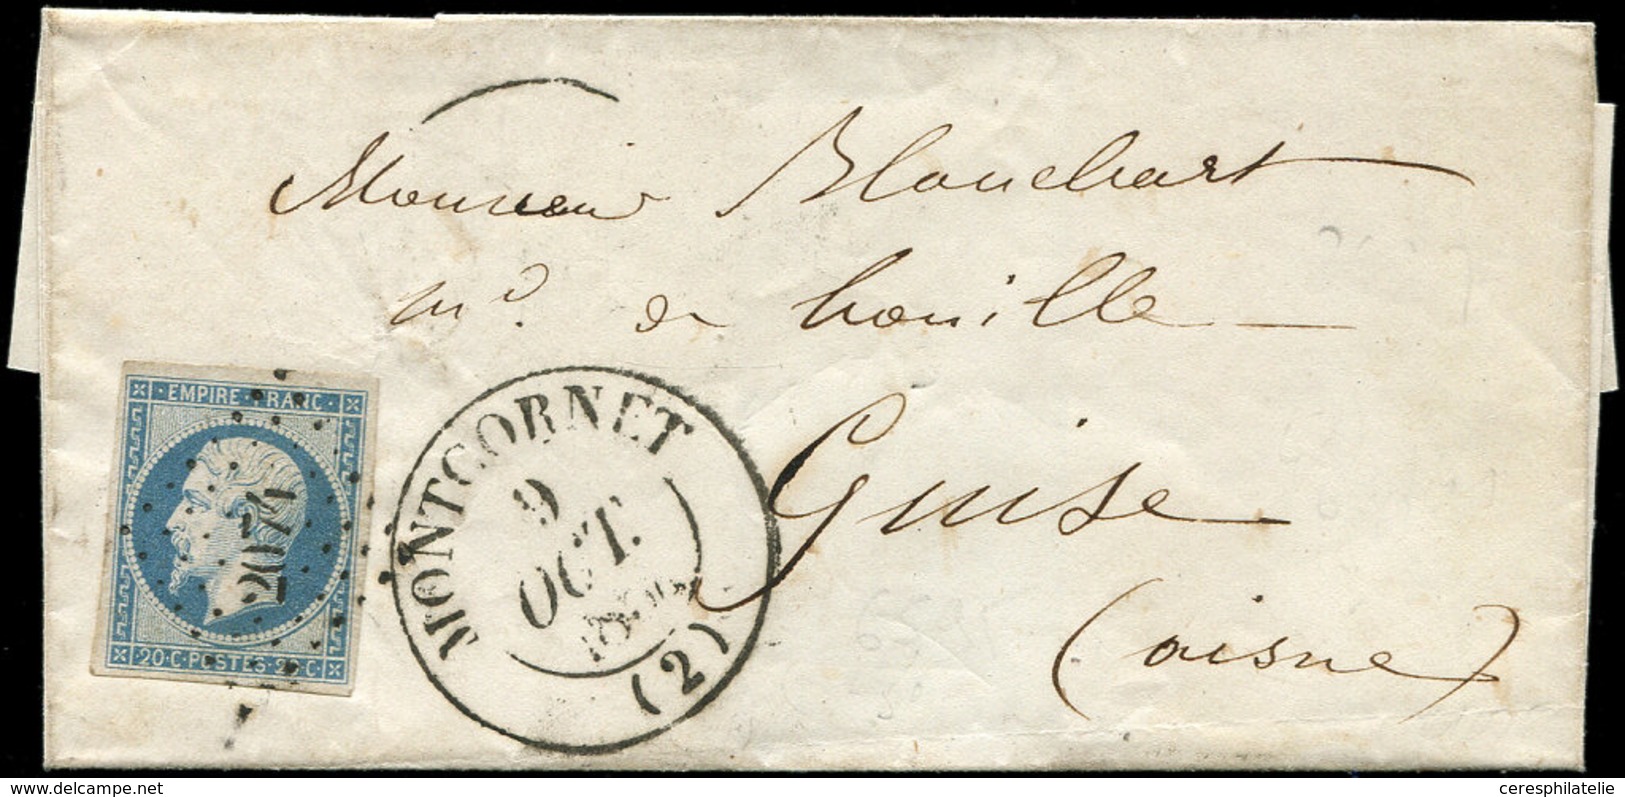 Monsieur Blanchart
md. de houille
Guise
(aisne)
EMPIRE FRANC
20·C·POSTES·20·C
2074
MONTCORNET
9
OCT.
(2)
ceresphilatelie